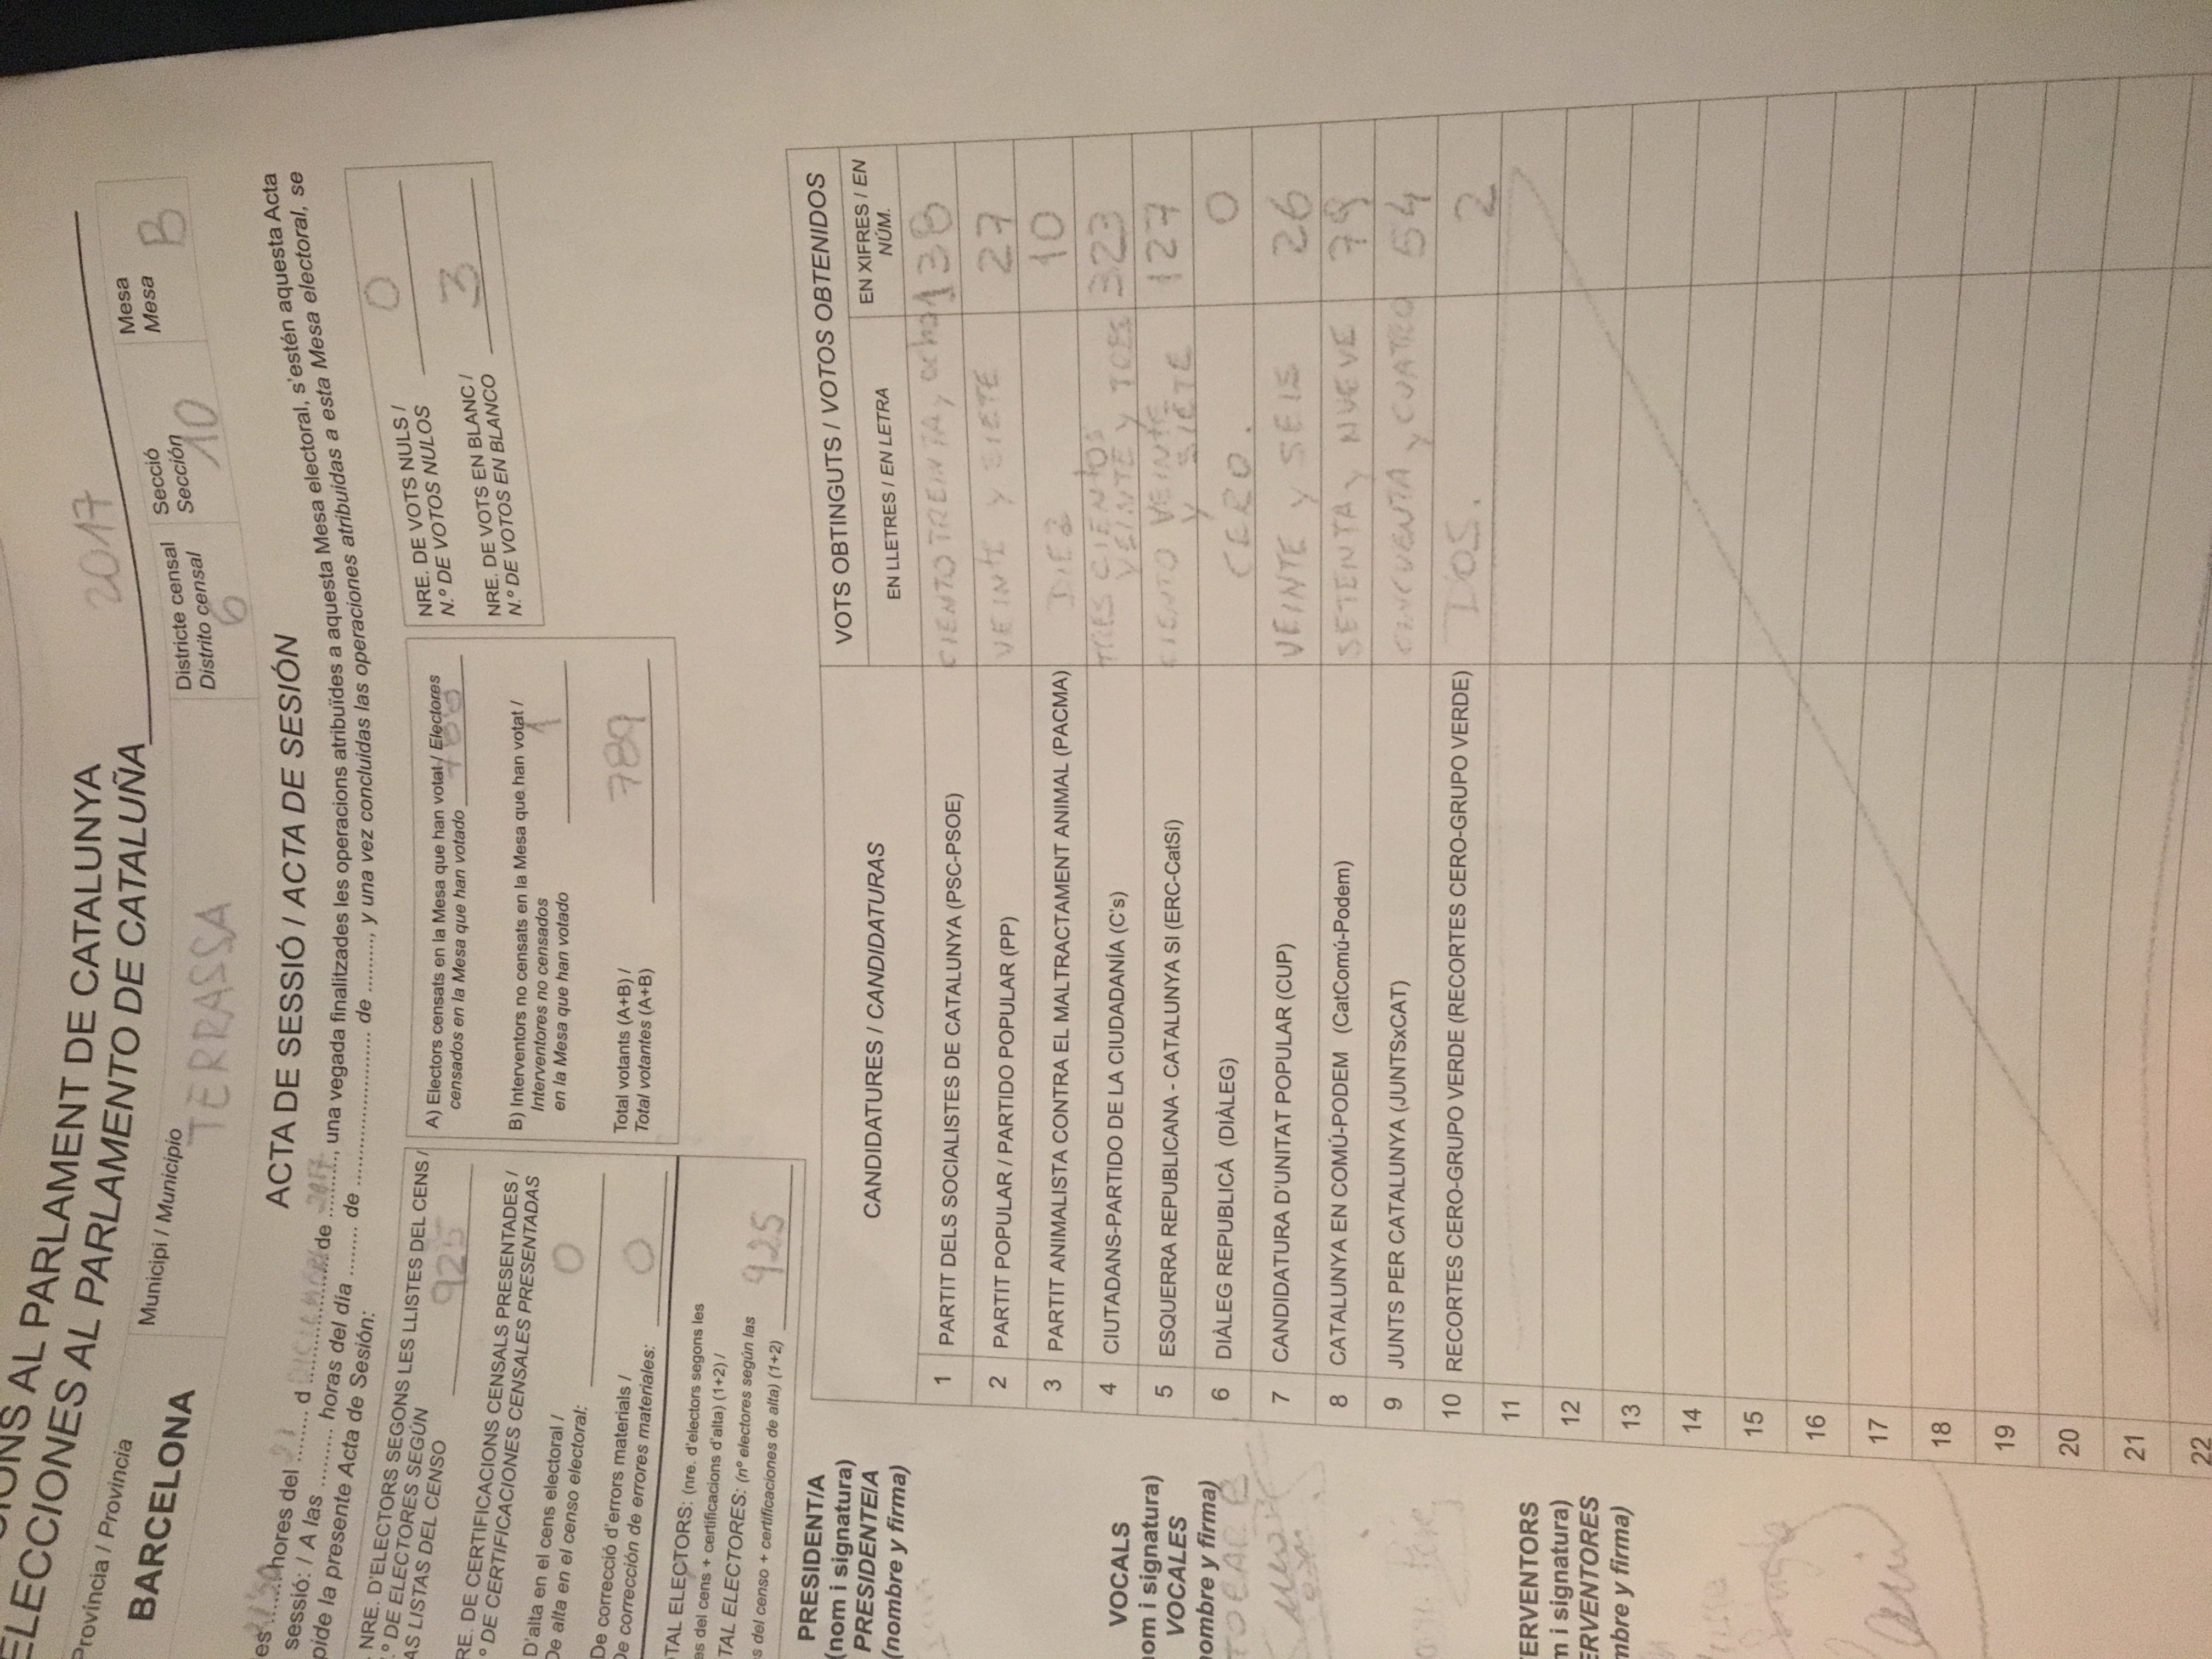 ELECCIONS AL PARLAMENT DE CATALUNYA
ELECCIONES AL PARLAMENTO DE CATALUÑA 2017
Provincia / Provincia
BARCELONA
Municipi / Municipio
TERRASSA
Districte censal
Distrito censal
6
Secció
Sección
10
Mesa
Mesa
B
ACTA DE SESSIÓ / ACTA DE SESIÓN
hores del 21 d de 2017, una vegada finalitzades les operacions atribuïdes a aquesta Mesa electoral, s'estén aquesta Acta
sessió: / A las ........... horas del día ........ de ........................ de ........, y una vez concluidas las operaciones atribuidas a esta Mesa electoral, se
pide la presente Acta de Sesión:
NRE. D'ELECTORS SEGONS LES LLISTES DEL CENS /
º DE ELECTORES SEGÚN
AS LISTAS DEL CENSO 925
RE. DE CERTIFICACIONS CENSALS PRESENTADES /
º DE CERTIFICACIONES CENSALES PRESENTADAS
D'alta en el cens electoral /
De alta en el censo electoral: 0
De correcció d'errors materials /
De corrección de errores materiales: 0
TAL ELECTORS: (nre. d'electors segons les
es del cens + certificacions d'alta) (1+2) /
TAL ELECTORES: (nº electores según las
s del censo + certificaciones de alta) (1+2) 925
A) Electors censats en la Mesa que han votat / Electores
censados en la Mesa que han votado 788
B) Interventors no censats en la Mesa que han votat /
Interventores no censados
en la Mesa que han votado 1
Total votants (A+B) /
Total votantes (A+B) 789
NRE. DE VOTS NULS /
N.º DE VOTOS NULOS 0
NRE. DE VOTS EN BLANC /
N.º DE VOTOS EN BLANCO 3
CANDIDATURES / CANDIDATURAS
VOTS OBTINGUTS / VOTOS OBTENIDOS
EN LLETRES / EN LETRA
EN XIFRES / EN
NÚM.
1 PARTIT DELS SOCIALISTES DE CATALUNYA (PSC-PSOE) CIENTO TREINTA y ocho 138
2 PARTIT POPULAR / PARTIDO POPULAR (PP) VEINTE Y SIETE 27
3 PARTIT ANIMALISTA CONTRA EL MALTRACTAMENT ANIMAL (PACMA) DIEZ 10
4 CIUTADANS-PARTIDO DE LA CIUDADANÍA (C's) TRES CIENTOS VEINTE Y TRES 323
5 ESQUERRA REPUBLICANA - CATALUNYA SI (ERC-CatSí) CIENTO VEINTE Y SIETE 127
6 DIÀLEG REPUBLICÀ (DIÀLEG) CERO. 0
7 CANDIDATURA D'UNITAT POPULAR (CUP) VEINTE Y SEIS 26
8 CATALUNYA EN COMÚ-PODEM (CatComú-Podem) SETENTA y NUEVE 79
9 JUNTS PER CATALUNYA (JUNTSxCAT) CINCUENTA y CUATRO 54
10 RECORTES CERO-GRUPO VERDE (RECORTES CERO-GRUPO VERDE) DOS. 2
11
12
13
14
15
16
17
18
19
20
21
22
PRESIDENT/A
(nom i signatura)
PRESIDENTE/A
(nombre y firma)
VOCALS
nom i signatura)
VOCALES
nombre y firma)
TERVENTORS
m i signatura)
ERVENTORES
mbre y firma)